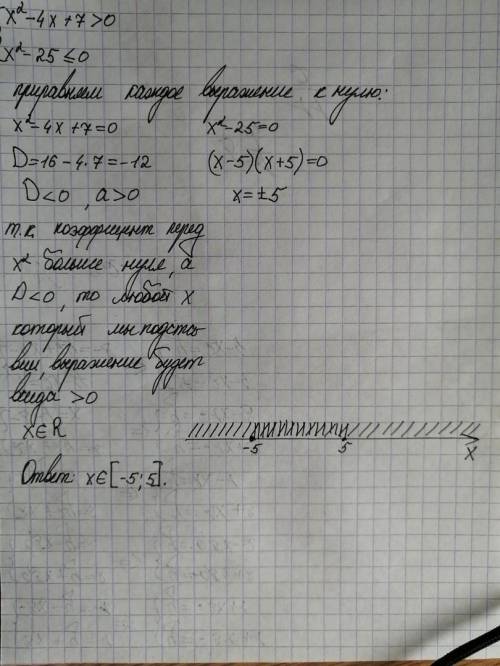 x²-4x+7>0
x²-25≤0
приравняем каждое выражение к нулю:
x²-4x+7=0 x²-25=0
D=16-4·7=-12 (x-5)(x+5)=0
D<0, a>0 x=±5
т.к. коэффициент перед
x² больше нуля, а
D<0, то любой x
который мы подста
вим, выражение будет
всегда >0
x∈R
-5 5 x
Ответ: x∈[-5;5].